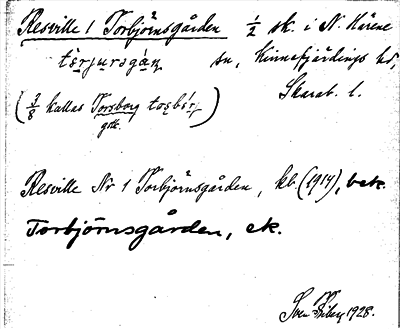 Resville 1 Torbjörnsgården 1/2 sk. i N. Kärene
tèrjursgá̀n sn, Kinnefjärdings hd,
(3/8 kallas Torsborg tosbórj) Skarab. l.
gtk.
Resville Nr 1 Torbjörnsgården, kb. (1914), bek.
Torbjörnsgården, ek.
Sven Ekbo 1928.